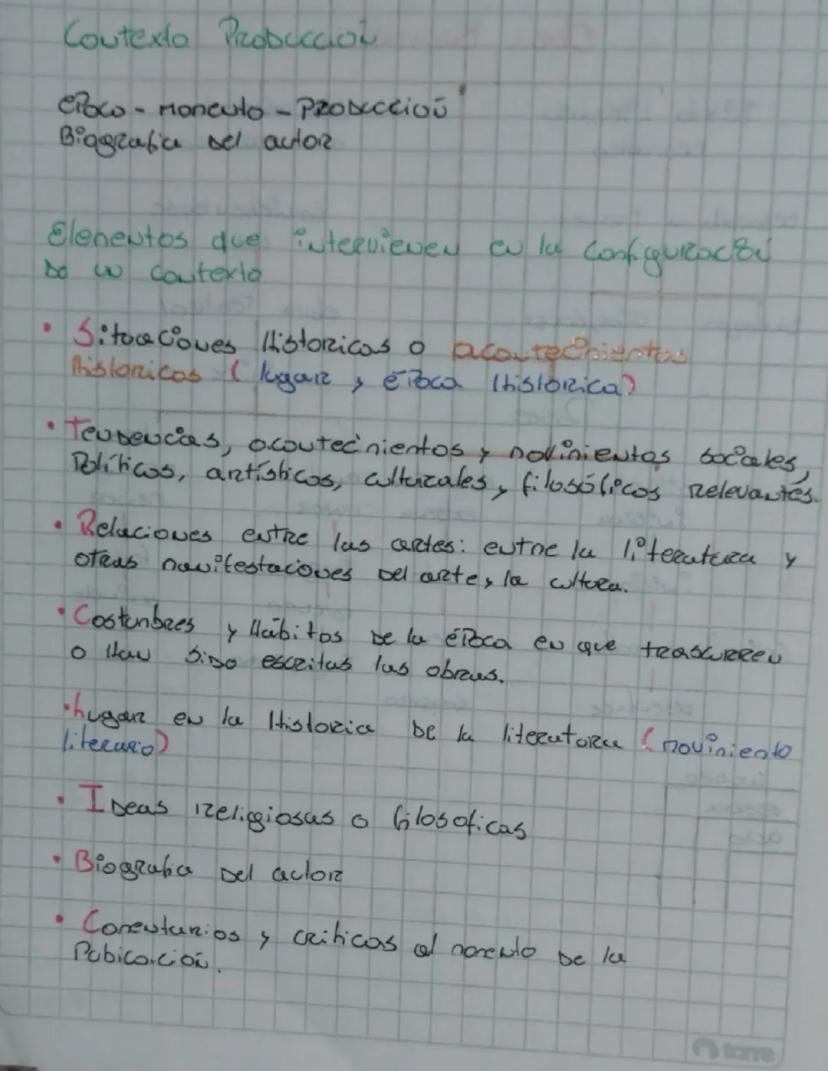 Contexto Producción
época - momento - Producción
Biografia del autor
Elementos que intervienen en la configuración
de un contexto
• Situaciones Historicas o acontecimientos
historicos (lugar y época histórica)
• Tendencias, acontecimientos y movimientos sociales,
Políticos, artísticos, culturales, filosóficos relevantes.
• Relaciones entre las artes: entre la literatura y
otras manifestaciones del arte y la cultura.
• Costumbres y Hábitos de la época en que trascurren
o Han sido escritas las obras.
• Lugar en la Historia de la literatura (movimiento
literario)
• Ideas religiosas o filosoficas
• Biografia del autor
• Comentarios y criticas al momento de la
Pubicación.
torre